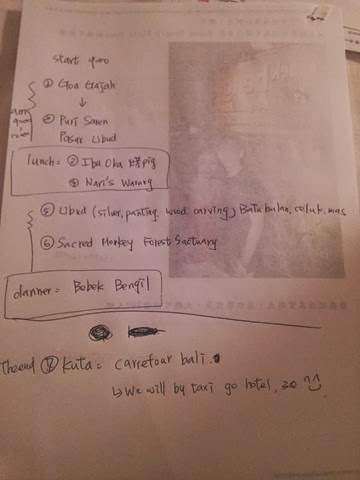 start 9:00
① Goa Gajah
↓
② Puri Saren
Pasar Ubud
lunch: ③ Ibu Oka 烤pig
④ Nari's Warung
⑤ Ubud (silver, painting, wood carving) Batubulan, celuk, mas
⑥ Sacred Monkey Forest Sactuary
danner = Bebek Bengil
Theend ⑦ Kuta = carrefour bali
↳ We will by taxi go hotel, 3Q